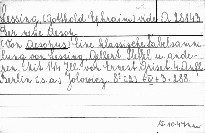 Lessing, (Gotthold Ephraim) vide: D. 28143.
Der neue Aesop.
(Von Aesopus) Eine klassische Fabelsamm-
lung von Lessing, Gellert, Pfeffel u. ande-
ren. Mit 144 Ill. von Ernest Griset. 4. Aufl.
Berlin (s.a.) Jolowicz. 8° XV + 3 - 288.